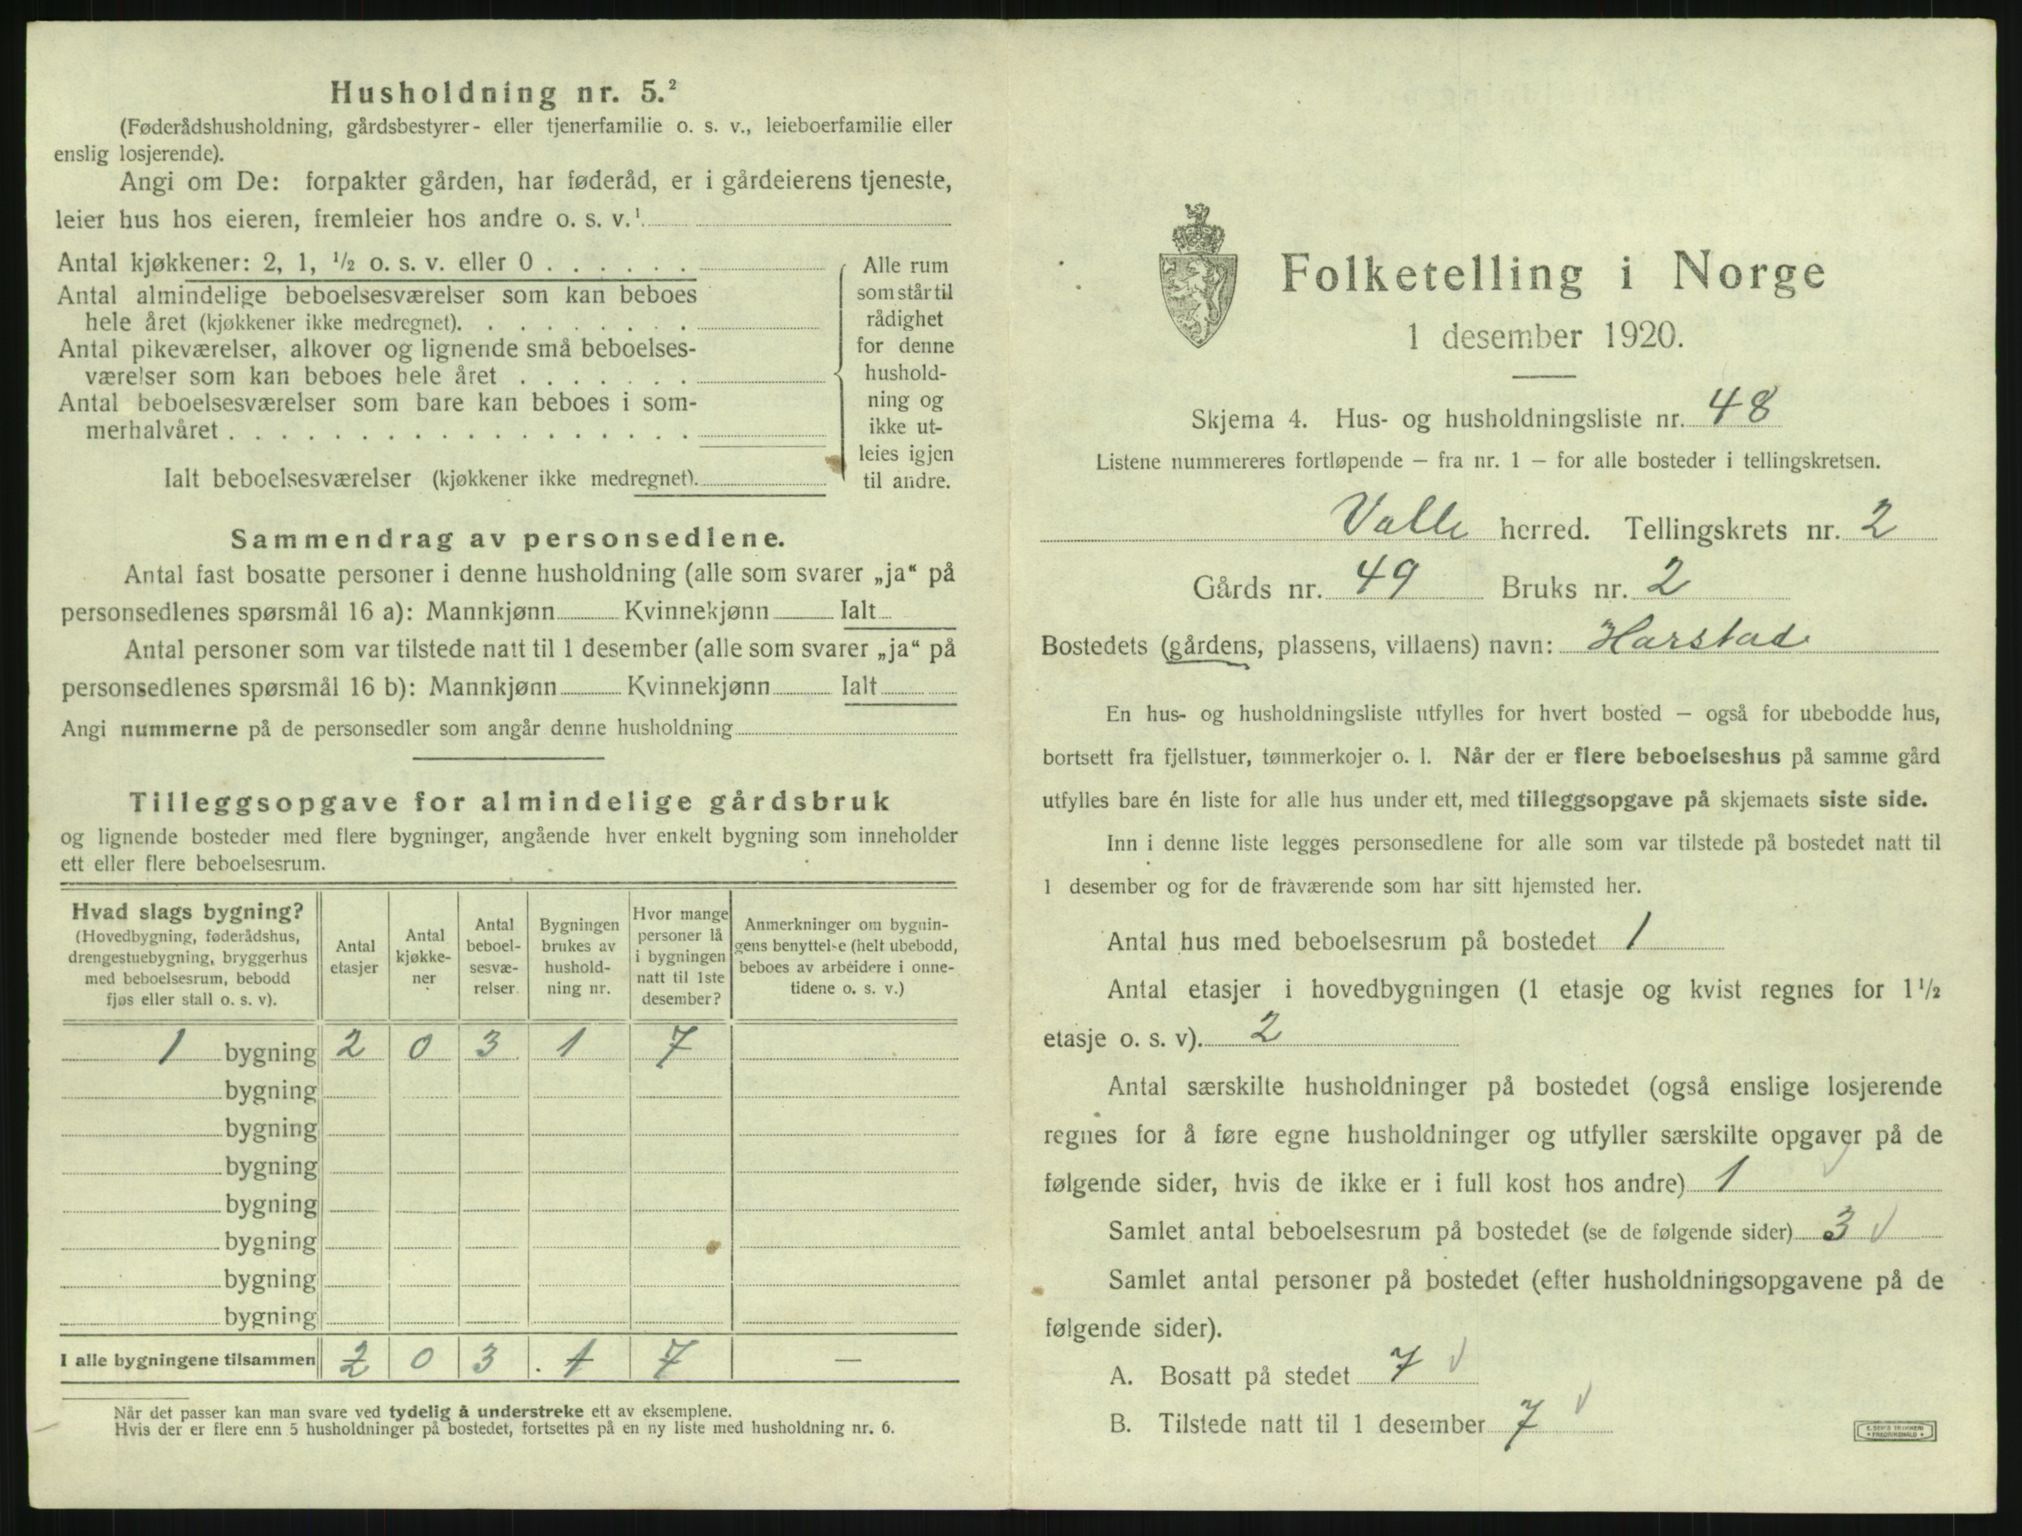 Husholdning nr. 5.²
(Føderådshusholdning, gårdsbestyrer- eller tjenerfamilie o. s. v., leieboerfamilie eller
enslig losjerende).
Angi om De: forpakter gården, har føderåd, er i gårdeierens tjeneste,
leier hus hos eieren, fremleier hos andre o. s. v.¹
Antal kjøkkener: 2, 1, ½ o. s. v. eller 0 . . . . . .
Antal almindelige beboelsesværelser som kan beboes
hele året (kjøkkener ikke medregnet). . . . . . . . .
Antal pikeværelser, alkover og lignende små beboelses-
værelser som kan beboes hele året . . . . . . .
Antal beboelsesværelser som bare kan beboes i som-
merhalvåret . . . . . . . . . . . . . . . . . .
Ialt beboelsesværelser (kjøkkener ikke medregnet).
Alle rum
som står til
rådighet
for denne
hushold-
ning og
ikke ut-
leies igjen
til andre.
Sammendrag av personsedlene.
Antal fast bosatte personer i denne husholdning (alle som svarer „ja“ på
personsedlenes spørsmål 16 a): Mannkjønn Kvinnekjønn Ialt
Antal personer som var tilstede natt til 1 desember (alle som svarer „ja“ på
personsedlenes spørsmål 16 b): Mannkjønn Kvinnekjønn Ialt
Angi nummerne på de personsedler som angår denne husholdning
Tilleggsopgave for almindelige gårdsbruk
og lignende bosteder med flere bygninger, angående hver enkelt bygning som inneholder
ett eller flere beboelsesrum.
Hvad slags bygning?
(Hovedbygning, føderådshus,
drengestuebygning, bryggerhus
med beboelsesrum, bebodd
fjøs eller stall o. s. v).
Antal
etasjer
Antal
kjøkke-
ner
Antal
beboel-
sesvæ-
relser
Bygningen
brukes av
hushold-
ning nr.
Hvor mange
personer lå
i bygningen
natt til 1ste
desember?
Anmerkninger om bygnin-
gens benyttelse (helt ubebodd,
beboes av arbeidere i onne-
tidene o. s. v.)
1 bygning 2 0 3 1 7
bygning
bygning
bygning
bygning
bygning
bygning
bygning
I alle bygningene tilsammen 2 0 3 . 1 7 —
Når det passer kan man svare ved tydelig å understreke ett av eksemplene.
Hvis der er flere enn 5 husholdninger på bostedet, fortsettes på en ny liste med husholdning nr. 6.
Folketelling i Norge
1 desember 1920.
Skjema 4. Hus- og husholdningsliste nr. 48
Listene nummereres fortløpende – fra nr. 1 – for alle bosteder i tellingskretsen.
Valle herred. Tellingskrets nr. 2
Gårds nr. 49 Bruks nr. 2
Bostedets (gårdens, plassens, villaens) navn: Harstad
En hus- og husholdningsliste utfylles for hvert bosted – også for ubebodde hus,
bortsett fra fjellstuer, tømmerkojer o. l. Når der er flere beboelseshus på samme gård
utfylles bare én liste for alle hus under ett, med tilleggsopgave på skjemaets siste side.
Inn i denne liste legges personsedlene for alle som var tilstede på bostedet natt til
1 desember og for de fraværende som har sitt hjemsted her.
Antal hus med beboelsesrum på bostedet 1
Antal etasjer i hovedbygningen (1 etasje og kvist regnes for 1½
etasje o. s. v). 2
Antal særskilte husholdninger på bostedet (også enslige losjerende
regnes for å føre egne husholdninger og utfyller særskilte opgaver på de
følgende sider, hvis de ikke er i full kost hos andre) 1
Samlet antal beboelsesrum på bostedet (se de følgende sider) 3
Samlet antal personer på bostedet (efter husholdningsopgavene på de
følgende sider).
A. Bosatt på stedet 7
B. Tilstede natt til 1 desember 7